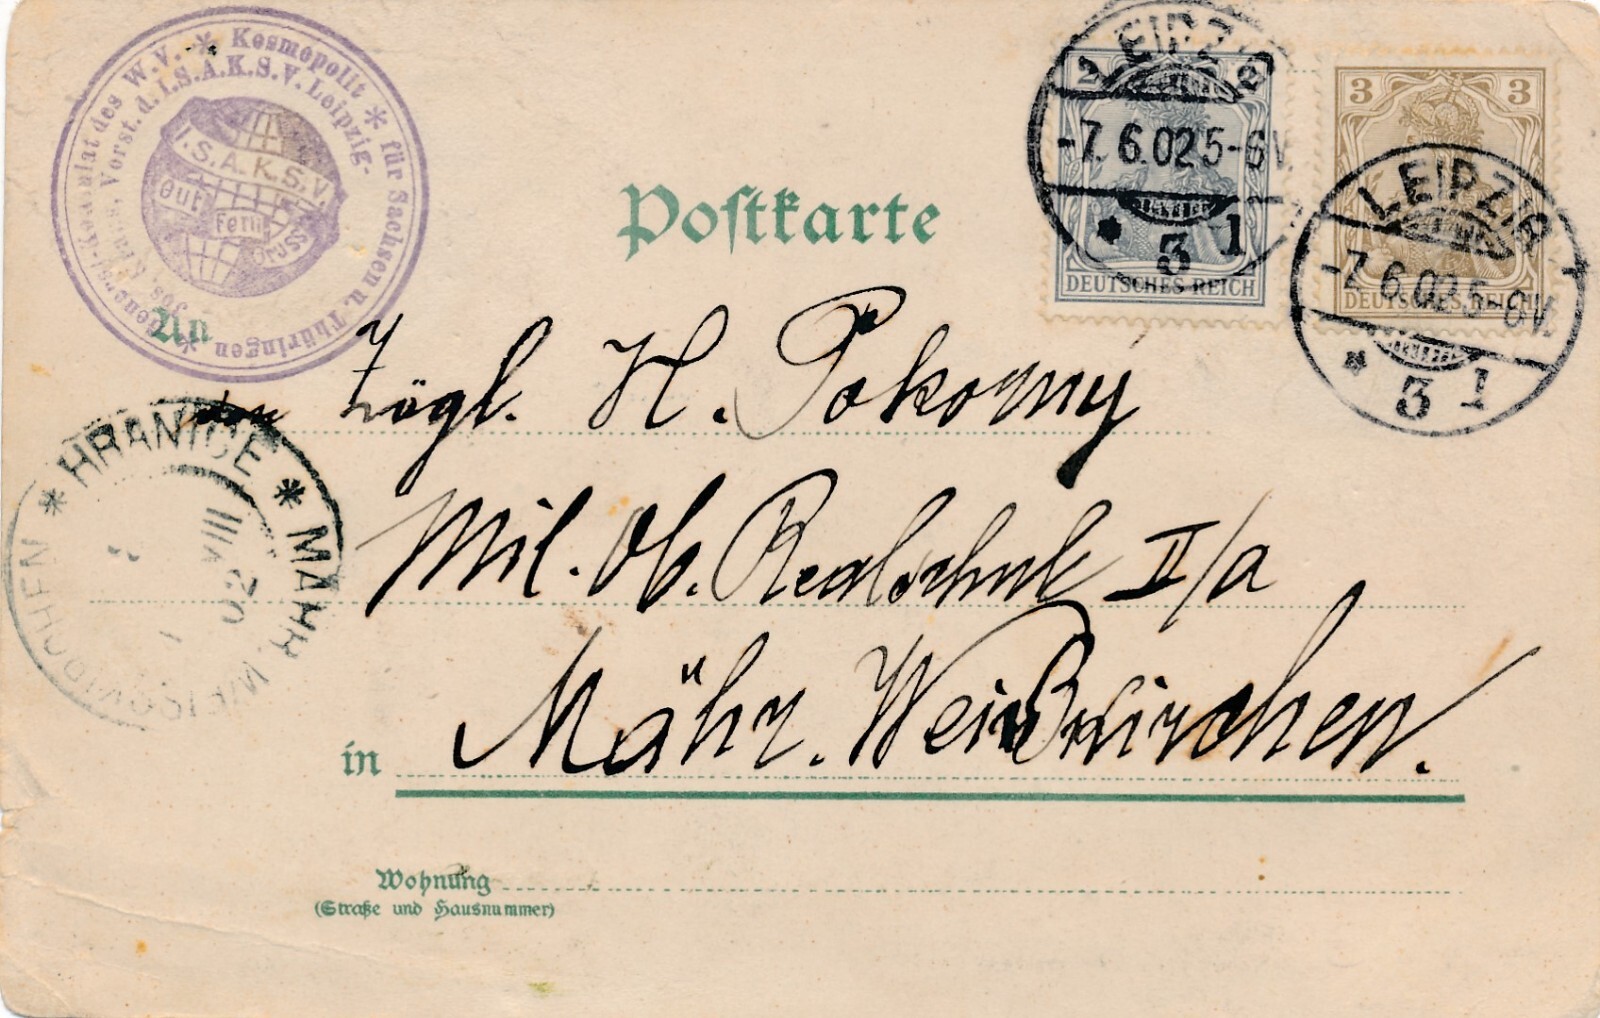 General-Konsulat des W.V. * Kosmopolit * für Sachsen u. Thüringen *
Vorst. d. I.S.A.K.S.V. Leipzig-
I.S.A.K.S.V.
Gut
Fern
Gruss
2
LEIPZIG
-7.6.02 5-6V.
* 3 1
DEUTSCHES REICH
3 3
LEIPZIG
-7.6.02 5-6V.
* 3 1
DEUTSCHES REICH
Postkarte
An
den Zögl. H. Pokorny
* HRANICE * MÄHR. WEISSKIRCHEN
VIII
02
Mil. Ob. Realschule II/a
in Mähr. Weißkirchen.
Wohnung
(Straße und Hausnummer)